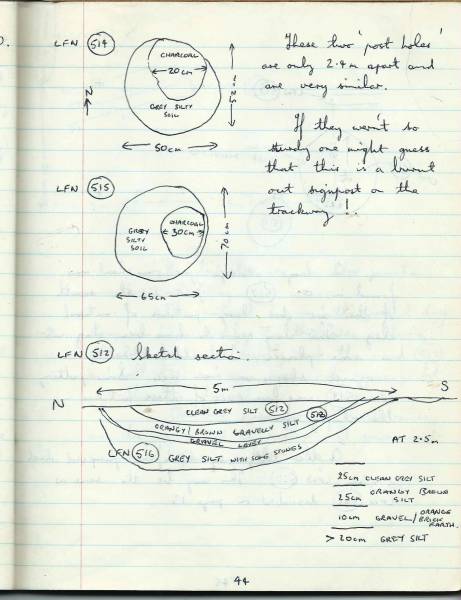 LFN 514
CHARCOAL
20cm
GREY SILTY
SOIL
52cm
50cm
N
These two 'post holes'
are only 2.4m apart and
are very similar.
If they wern't so
sturdy one might guess
that this is a burnt
out signpost on the
trackway!.
LFN 515
CHARCOAL
30cm
GREY
SILTY
SOIL
70cm
65cm
LFN 512 Sketch section.
5m
N
S
CLEAN GREY SILT 512
ORANGY/BROWN GRAVELLY SILT 513
GRAVEL LAYER
LFN 516 GREY SILT WITH SOME STONES
AT 2.5m
25cm CLEAN GREY SILT
25cm ORANGY
SILT
10cm GRAVEL/ORANGE
BRICK
EARTH.
> 20cm GREY SILT
44